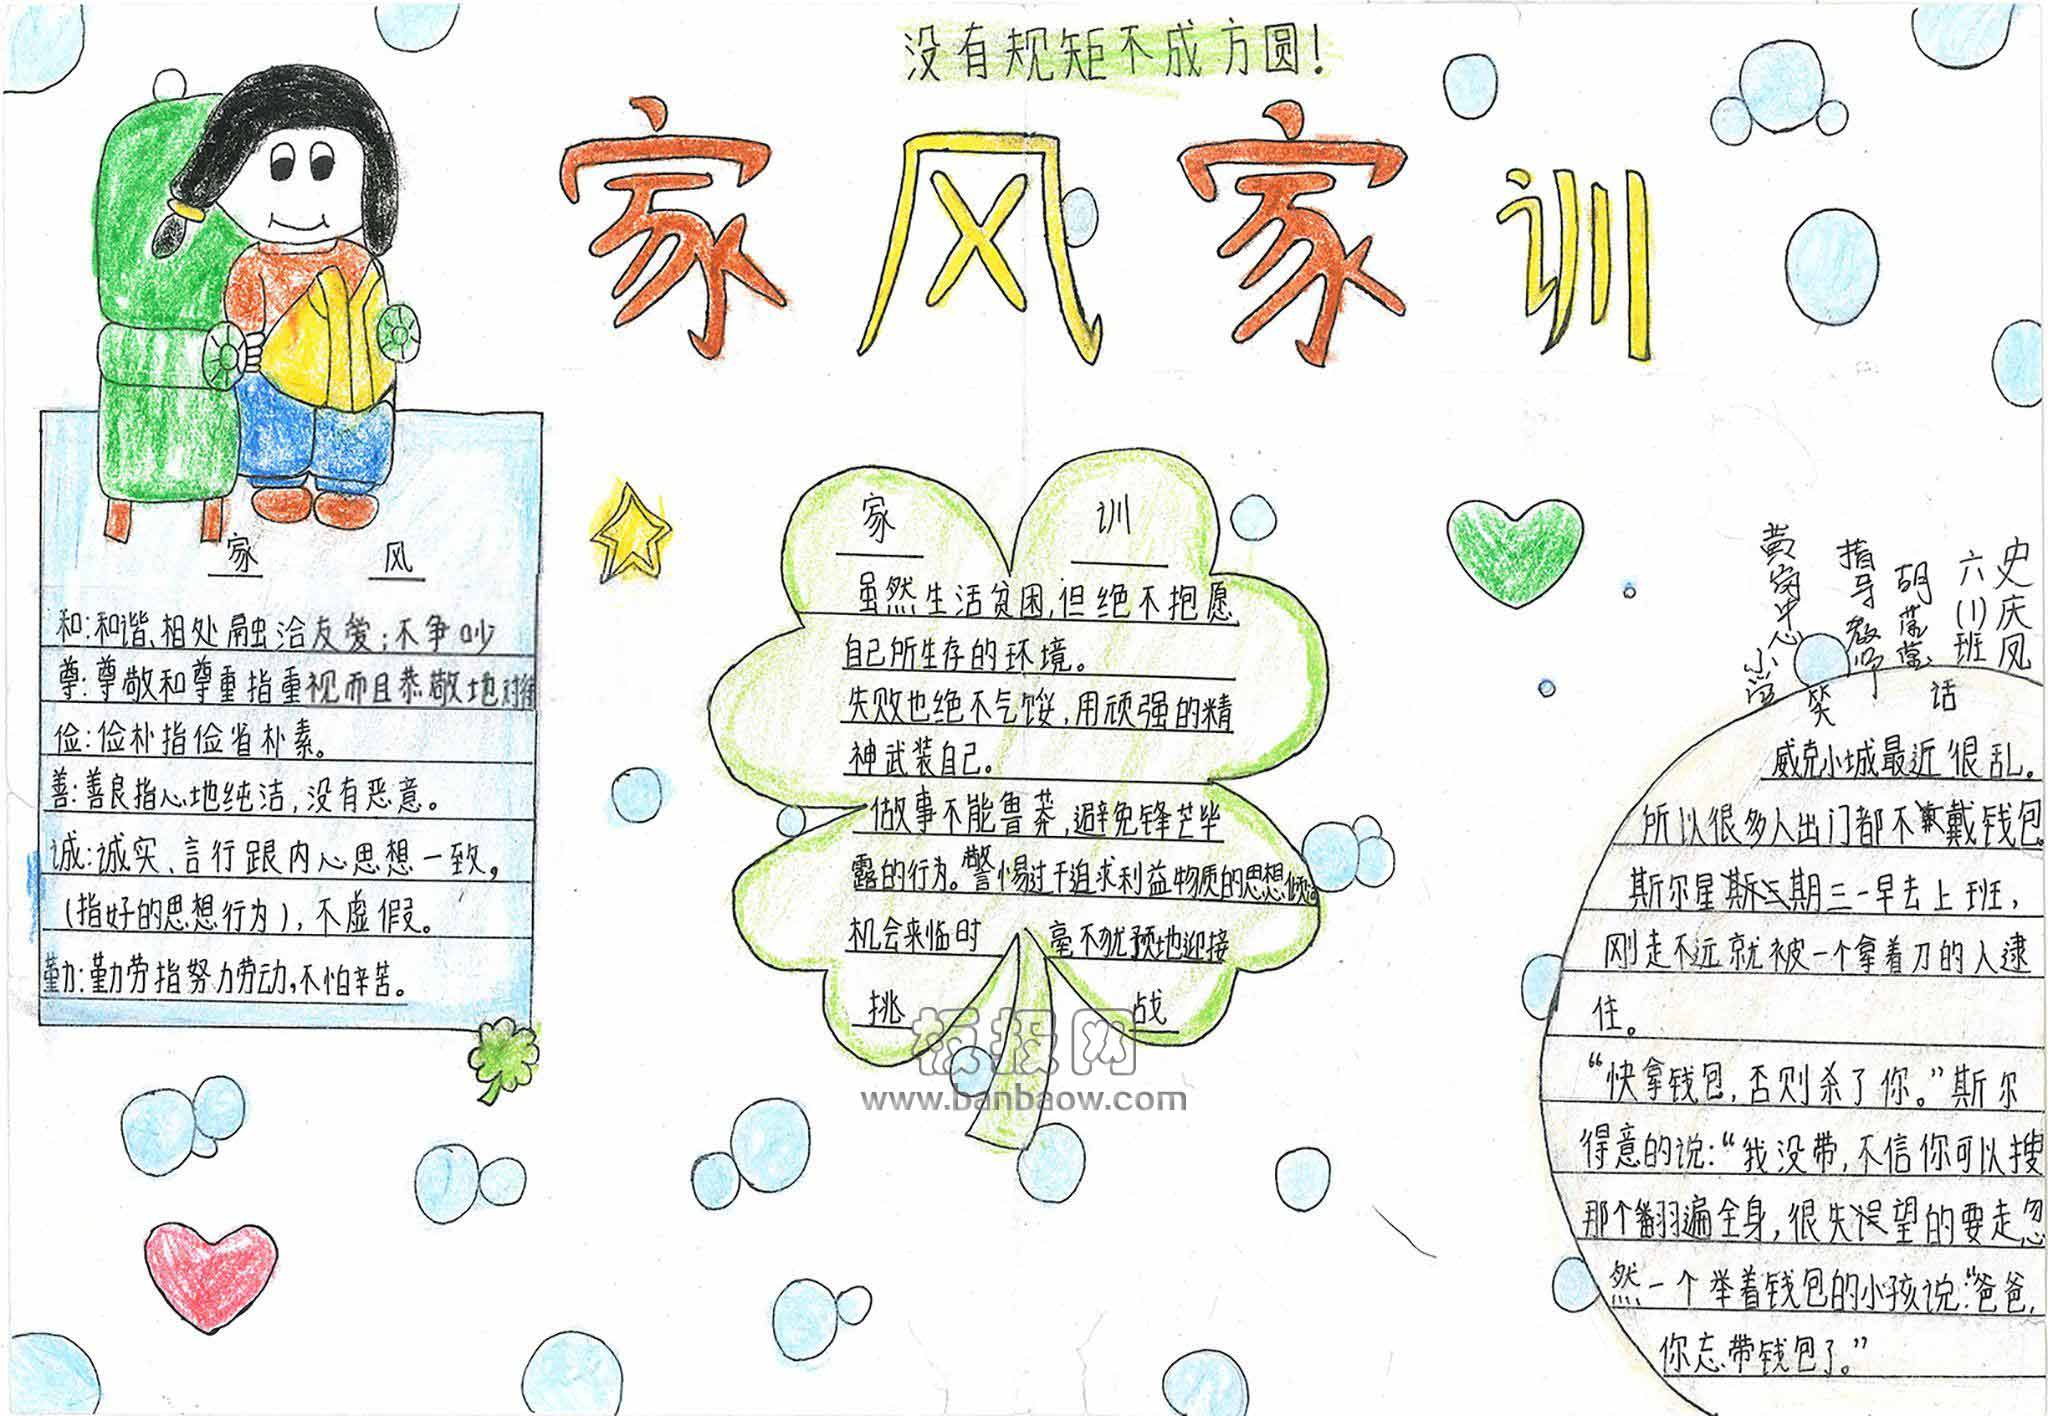 没有规矩不成方圆!
家风家训
家 风
和:和谐、相处融洽友爱;不争吵
尊:尊敬和尊重指重视而且恭敬地对待
俭:俭朴指俭省朴素。
善:善良指心地纯洁,没有恶意。
诚:诚实、言行跟内心思想一致,
(指好的思想行为),不虚假。
勤:勤劳指努力劳动,不怕辛苦。
家 训
虽然生活贫困,但绝不抱愿
自己所生存的环境。
失败也绝不气馁,用顽强的精
神武装自己。
做事不能鲁莽,避免锋芒毕
露的行为。警惕过于追求利益物质的思想倾
机会来临时 毫不犹预地迎接
挑 战
史庆凤
六(1)班
胡
指导教师
黄岗中心小学
笑 话
威克小城最近很乱。
所以很多人出门都不戴钱包。
斯尔星期三一早去上班,
刚走不远就被一个拿着刀的人逮
住。
“快拿钱包,否则杀了你。”斯尔
得意的说:“我没带,不信你可以搜
那个翻遍全身,很失望的要走忽
然一个举着钱包的小孩说:“爸爸,
你忘带钱包了。”
板报网
www.banbaow.com